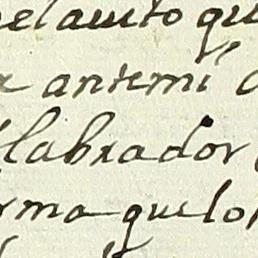 el auto qu
antemi
labrador
rma que lo